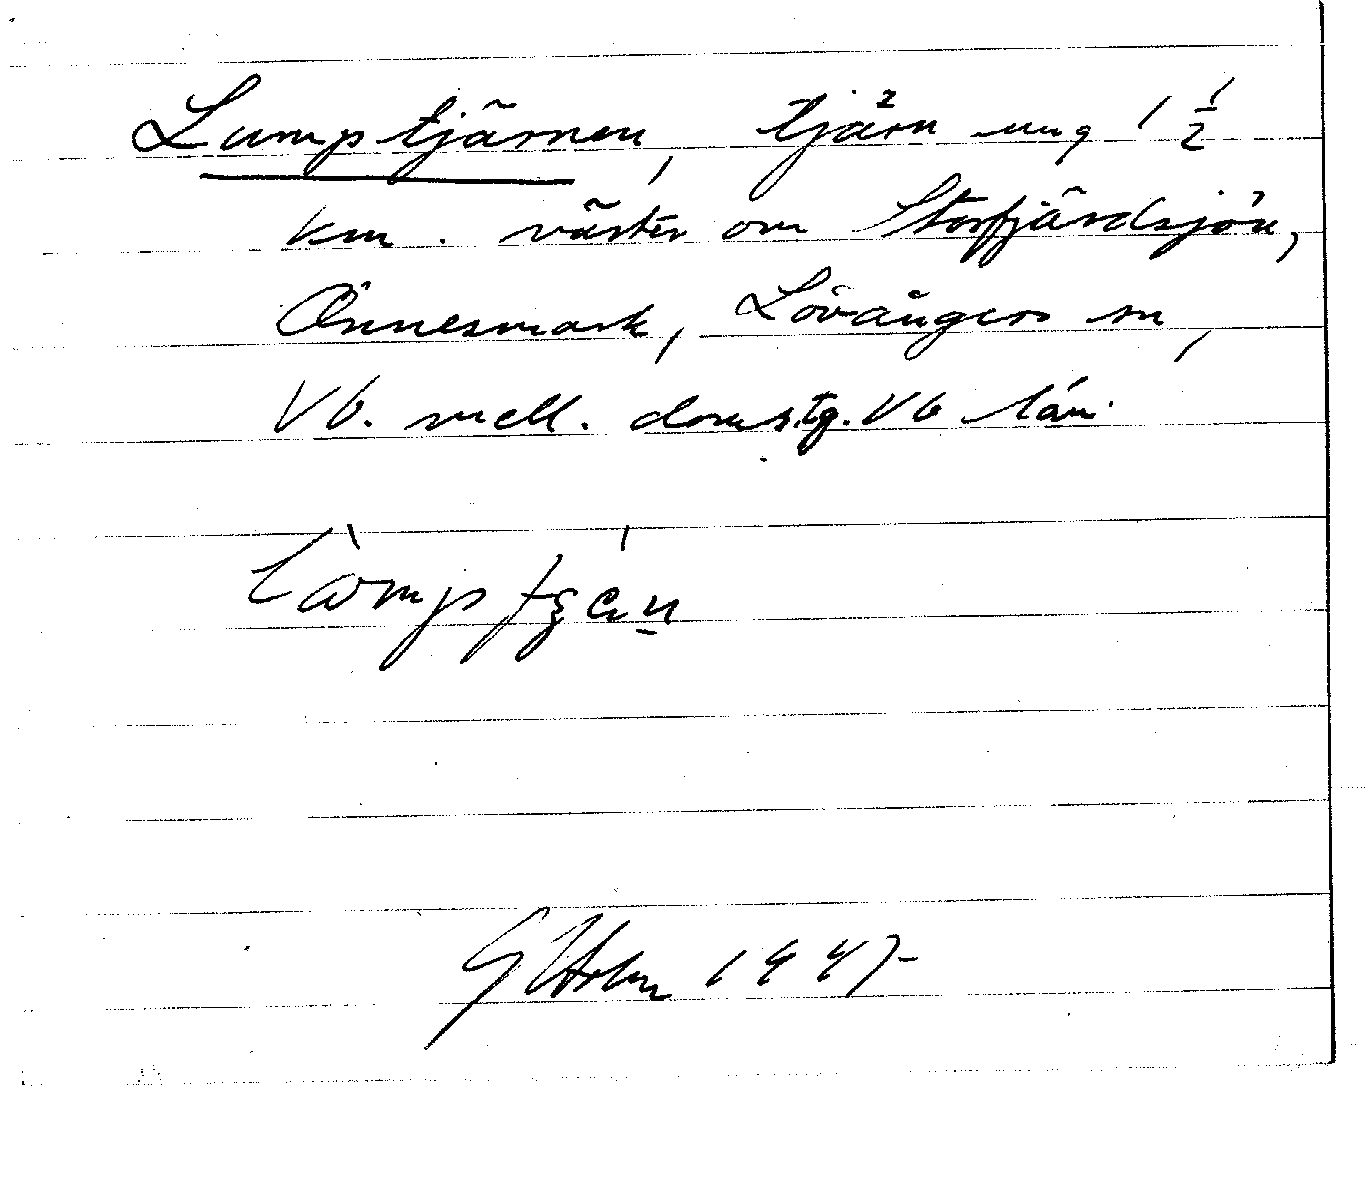 Lumptjärnen, tjärn ung 1 1/2
km. väster om Storfjärdsjön,
Önnesmark, Lövångers sn,
Vb. mell. domstg. Vb län.
G Holm 1947